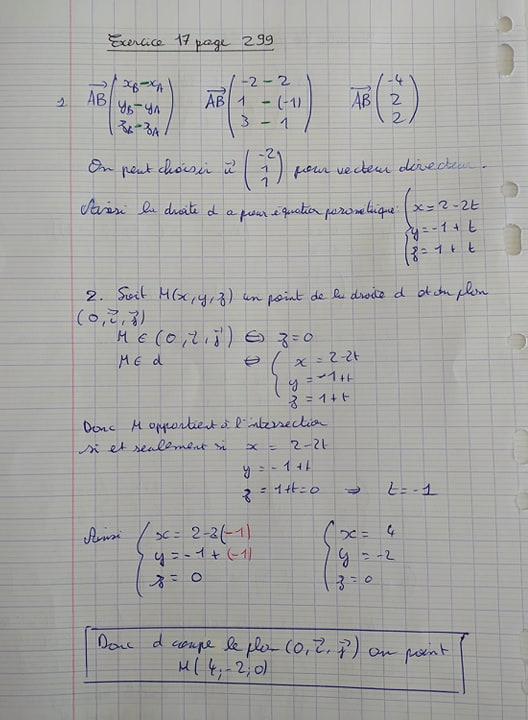 Exercice 17 page 299
1. AB→ ( xB - xA ; yB - yA ; zB - zA ) AB→ ( -2 - 2 ; 1 - (-1) ; 3 - 1 ) AB→ ( -4 ; 2 ; 2 )
On peut choisir u→ ( -2 ; 1 ; 1 ) pour vecteur directeur.
Ainsi la droite d a pour équation paramétrique: { x = 2 - 2t
y = -1 + t
z = 1 + t
2. Soit M(x, y, z) un point de la droite d et du plan
(O, i→, j→)
M ∈ (O, i→, j→) ⇔ z = 0
M ∈ d ⇔ { x = 2-2t
y = -1+t
z = 1+t
Donc M appartient à l'intersection
si et seulement si x = 2-2t
y = -1+t
z = 1+t = 0 ⇒ t = -1
Ainsi { x = 2-2(-1) { x = 4
y = -1 + (-1) y = -2
z = 0 z = 0
Donc d coupe le plan (O, i→, j→) au point
M(4; -2; 0)